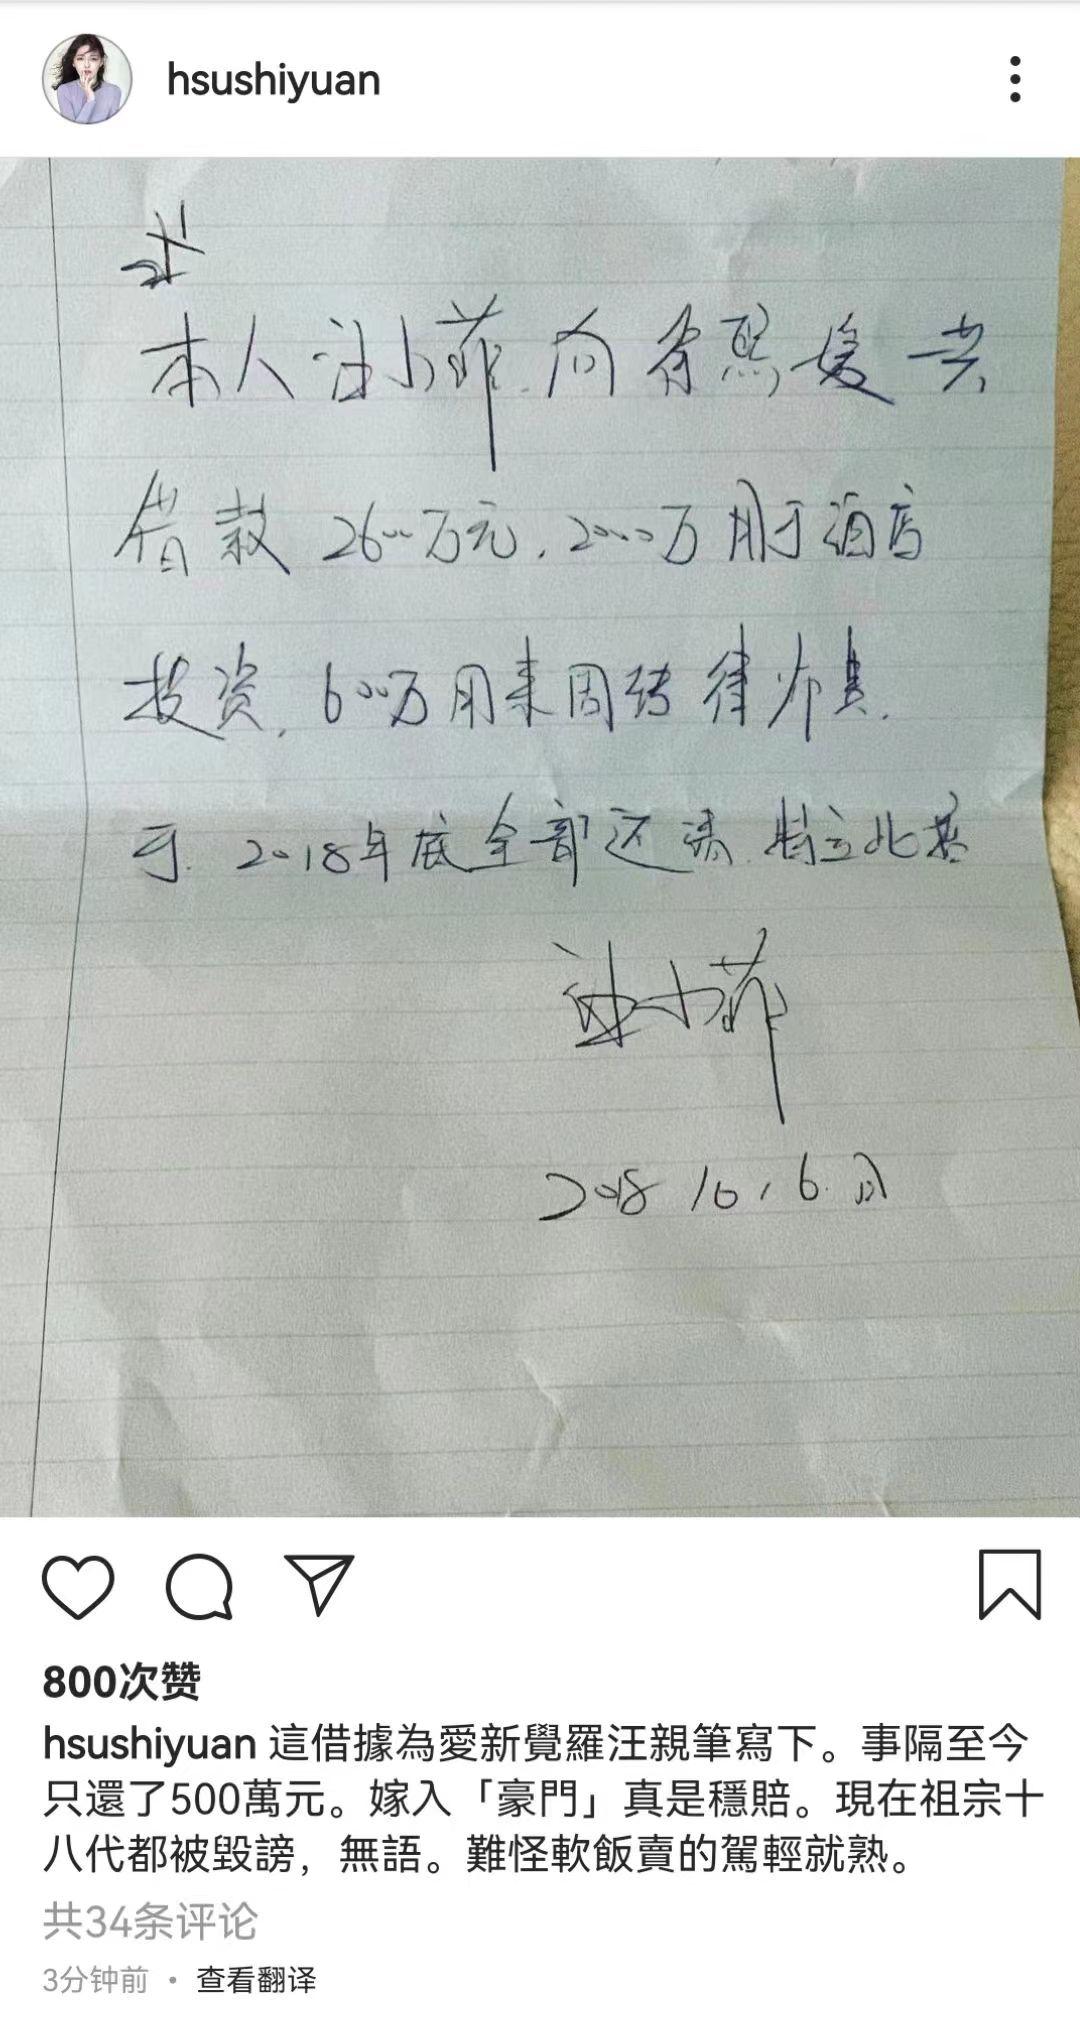 hsushiyuan
本人汪小菲向徐熙媛共
借款2600万元，2000万用于酒店
投资，600万用来周转律师费，
于2018年底全部还清，特立此
汪小菲
2018 10，6
800次赞
hsushiyuan 這借據為愛新覺羅汪親筆寫下。事隔至今
只還了500萬元。嫁入「豪門」真是穩賠。現在祖宗十
八代都被毀謗，無語。難怪軟飯賣的駕輕就熟。
共34条评论
3分钟前 • 查看翻译